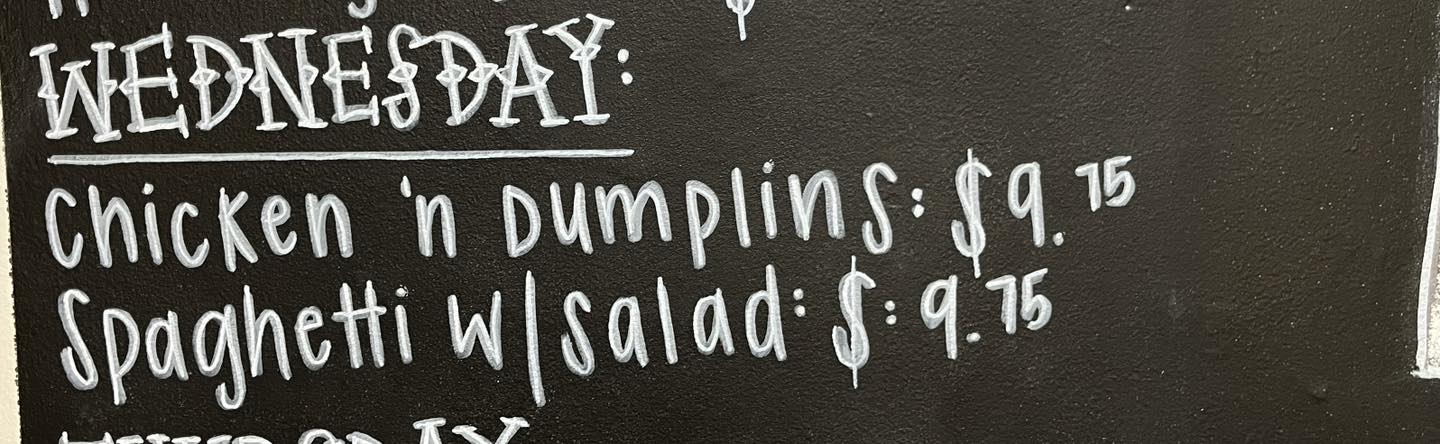 WEDNESDAY:
Chicken 'n Dumplins: $9.75
Spaghetti w/salad: $: 9.75
THURSDAY